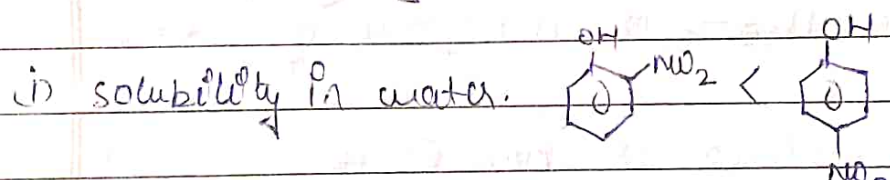 i) solubility in water. OH NO2 < OH
NO2